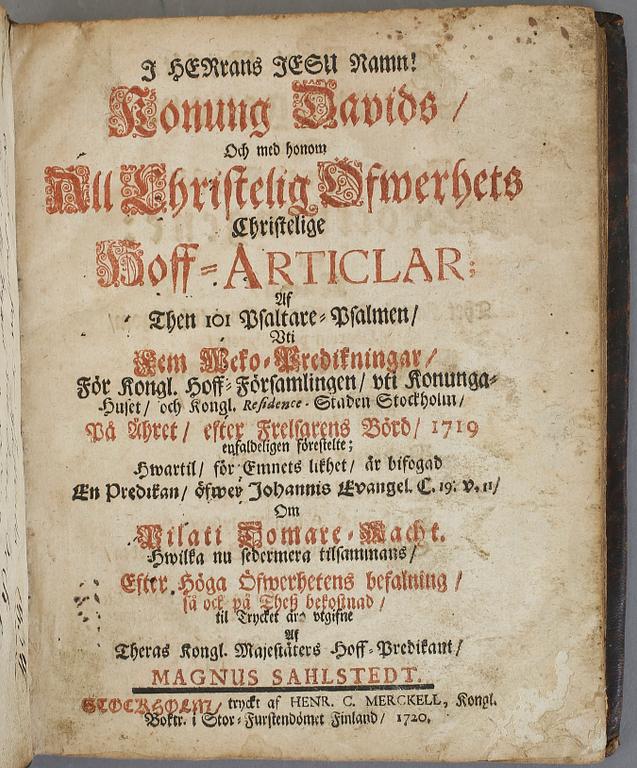 J HERrans JESU Namn!
Konung Davids /
Och med honom
All Christelig Öfwerhets
Christelige
Hoff-ARTICLAR;
Af
Then 101 Psaltare-Psalmen/
Uti
Fem Weko-Predikningar/
För Kongl. Hoff-Församlingen/ vti Konunga-
Huset/ och Kongl. Residence-Staden Stockholm/
På Åhret/ efter Frelsarens Börd/ 1719
enfaldeligen förestelte;
Hwartil/ för Emnets likhet/ är bifogad
En Predikan/ öfwer Johannis Evangel. C. 19. v. 11/
Om
Pilati Domare-Macht.
Hwilka nu sedermera tilsammans/
Efter Höga Öfwerhetens befalning /
så ock på Theß bekostnad /
til Trycket äro vtgifne
Af
Theras Kongl. Majestäters Hoff-Predikant/
MAGNUS SAHLSTEDT.
STOCKHOLM/ tryckt af HENR. C. MERCKELL, Kongl.
Boktr. i Stor-Furstendömet Finland/ 1720.